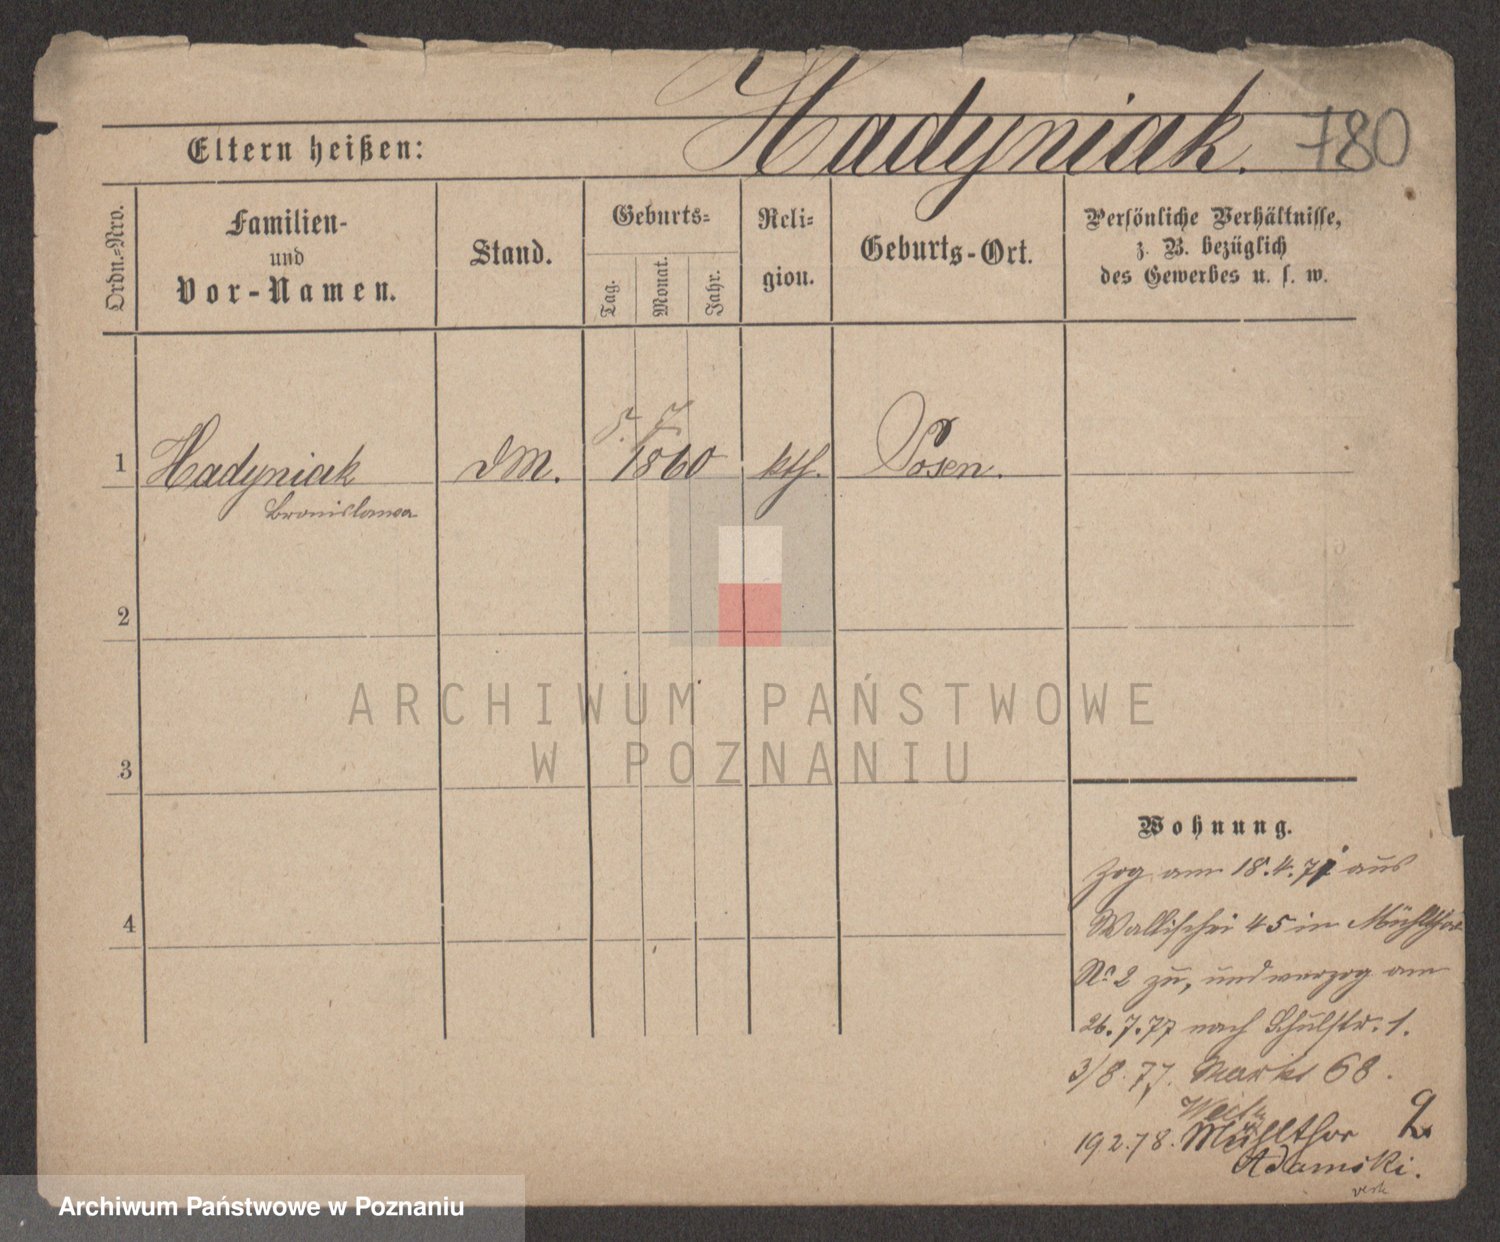 Hadyniak. 780
Eltern heißen:
Ordn.-Nro.
Familien-
und
Vor-Namen.
Stand.
Geburts-
Tag.
Monat.
Jahr.
Reli-
gion.
Geburts-Ort.
Persönliche Verhältnisse,
z. B. bezüglich
des Gewerbes u. s. w.
5. 7
1 Hadyniak DM. 1860 kth. Posen.
Bronislawa
2
3
4
ARCHIWUM PAŃSTWOWE
W POZNANIU
Wohnung.
zog am 18.4.77 aus
Wallischei 45 in Mühlthor
No 2 zu, und verzog am
26.7.77 nach Schulstr. 1.
3/8.77. Markt 68.
19 2.78. Mühlthor 2
Adamski.
Archiwum Państwowe w Poznaniu